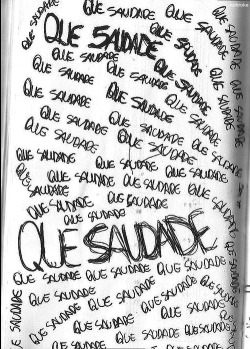 QUE SAUDADE QUE SAUDADE QUE
QUE SAUDADE QUE SAUDADE
QUE SAUDADE QUE SAUDADE
QUE SAUDADE QUE SAUDADE
QUE SAUDADE QUE SAUDADE
QUE SAUDADE QUE SAUDADE
QUE SAUDADE QUE SAUDADE
QUE SAUDADE QUE SAUDADE
QUE SAUDADE QUE SAUDADE
QUE SAUDADE QUE SAUDADE
QUE SAUDADE
QUE SAUDADE
QUE SAUDADE QUE SAUDADE QUE SAUDADE
QUE SAUDADE QUE SAUDADE QUE SAUDADE
QUE SAUDADE QUE SAUDADE QUE SAUDADE
QUE SAUDADE QUE SAUDADE QUE SAUDADE